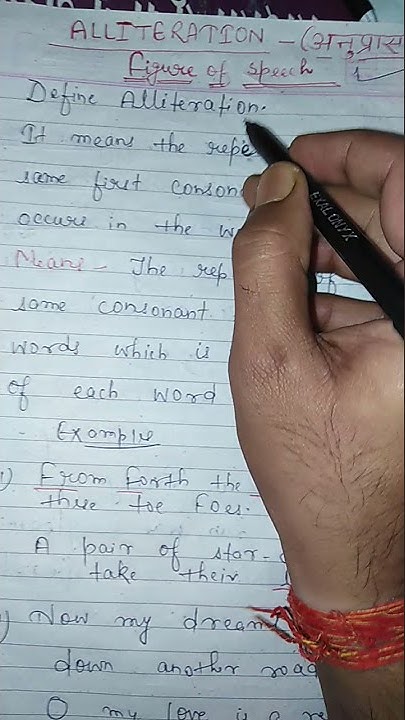 ALLITERATION - (अनुप्रास
Figure of speech
Define Alliteration.
It means the repe
same first conson
occurs in the w
Means - The rep
same consonant
words which is
of each word
Example
From forth the
these toe Foes.
A pair of star-
take their
Now my dream
down another road
O my love is a re
EXALONYX